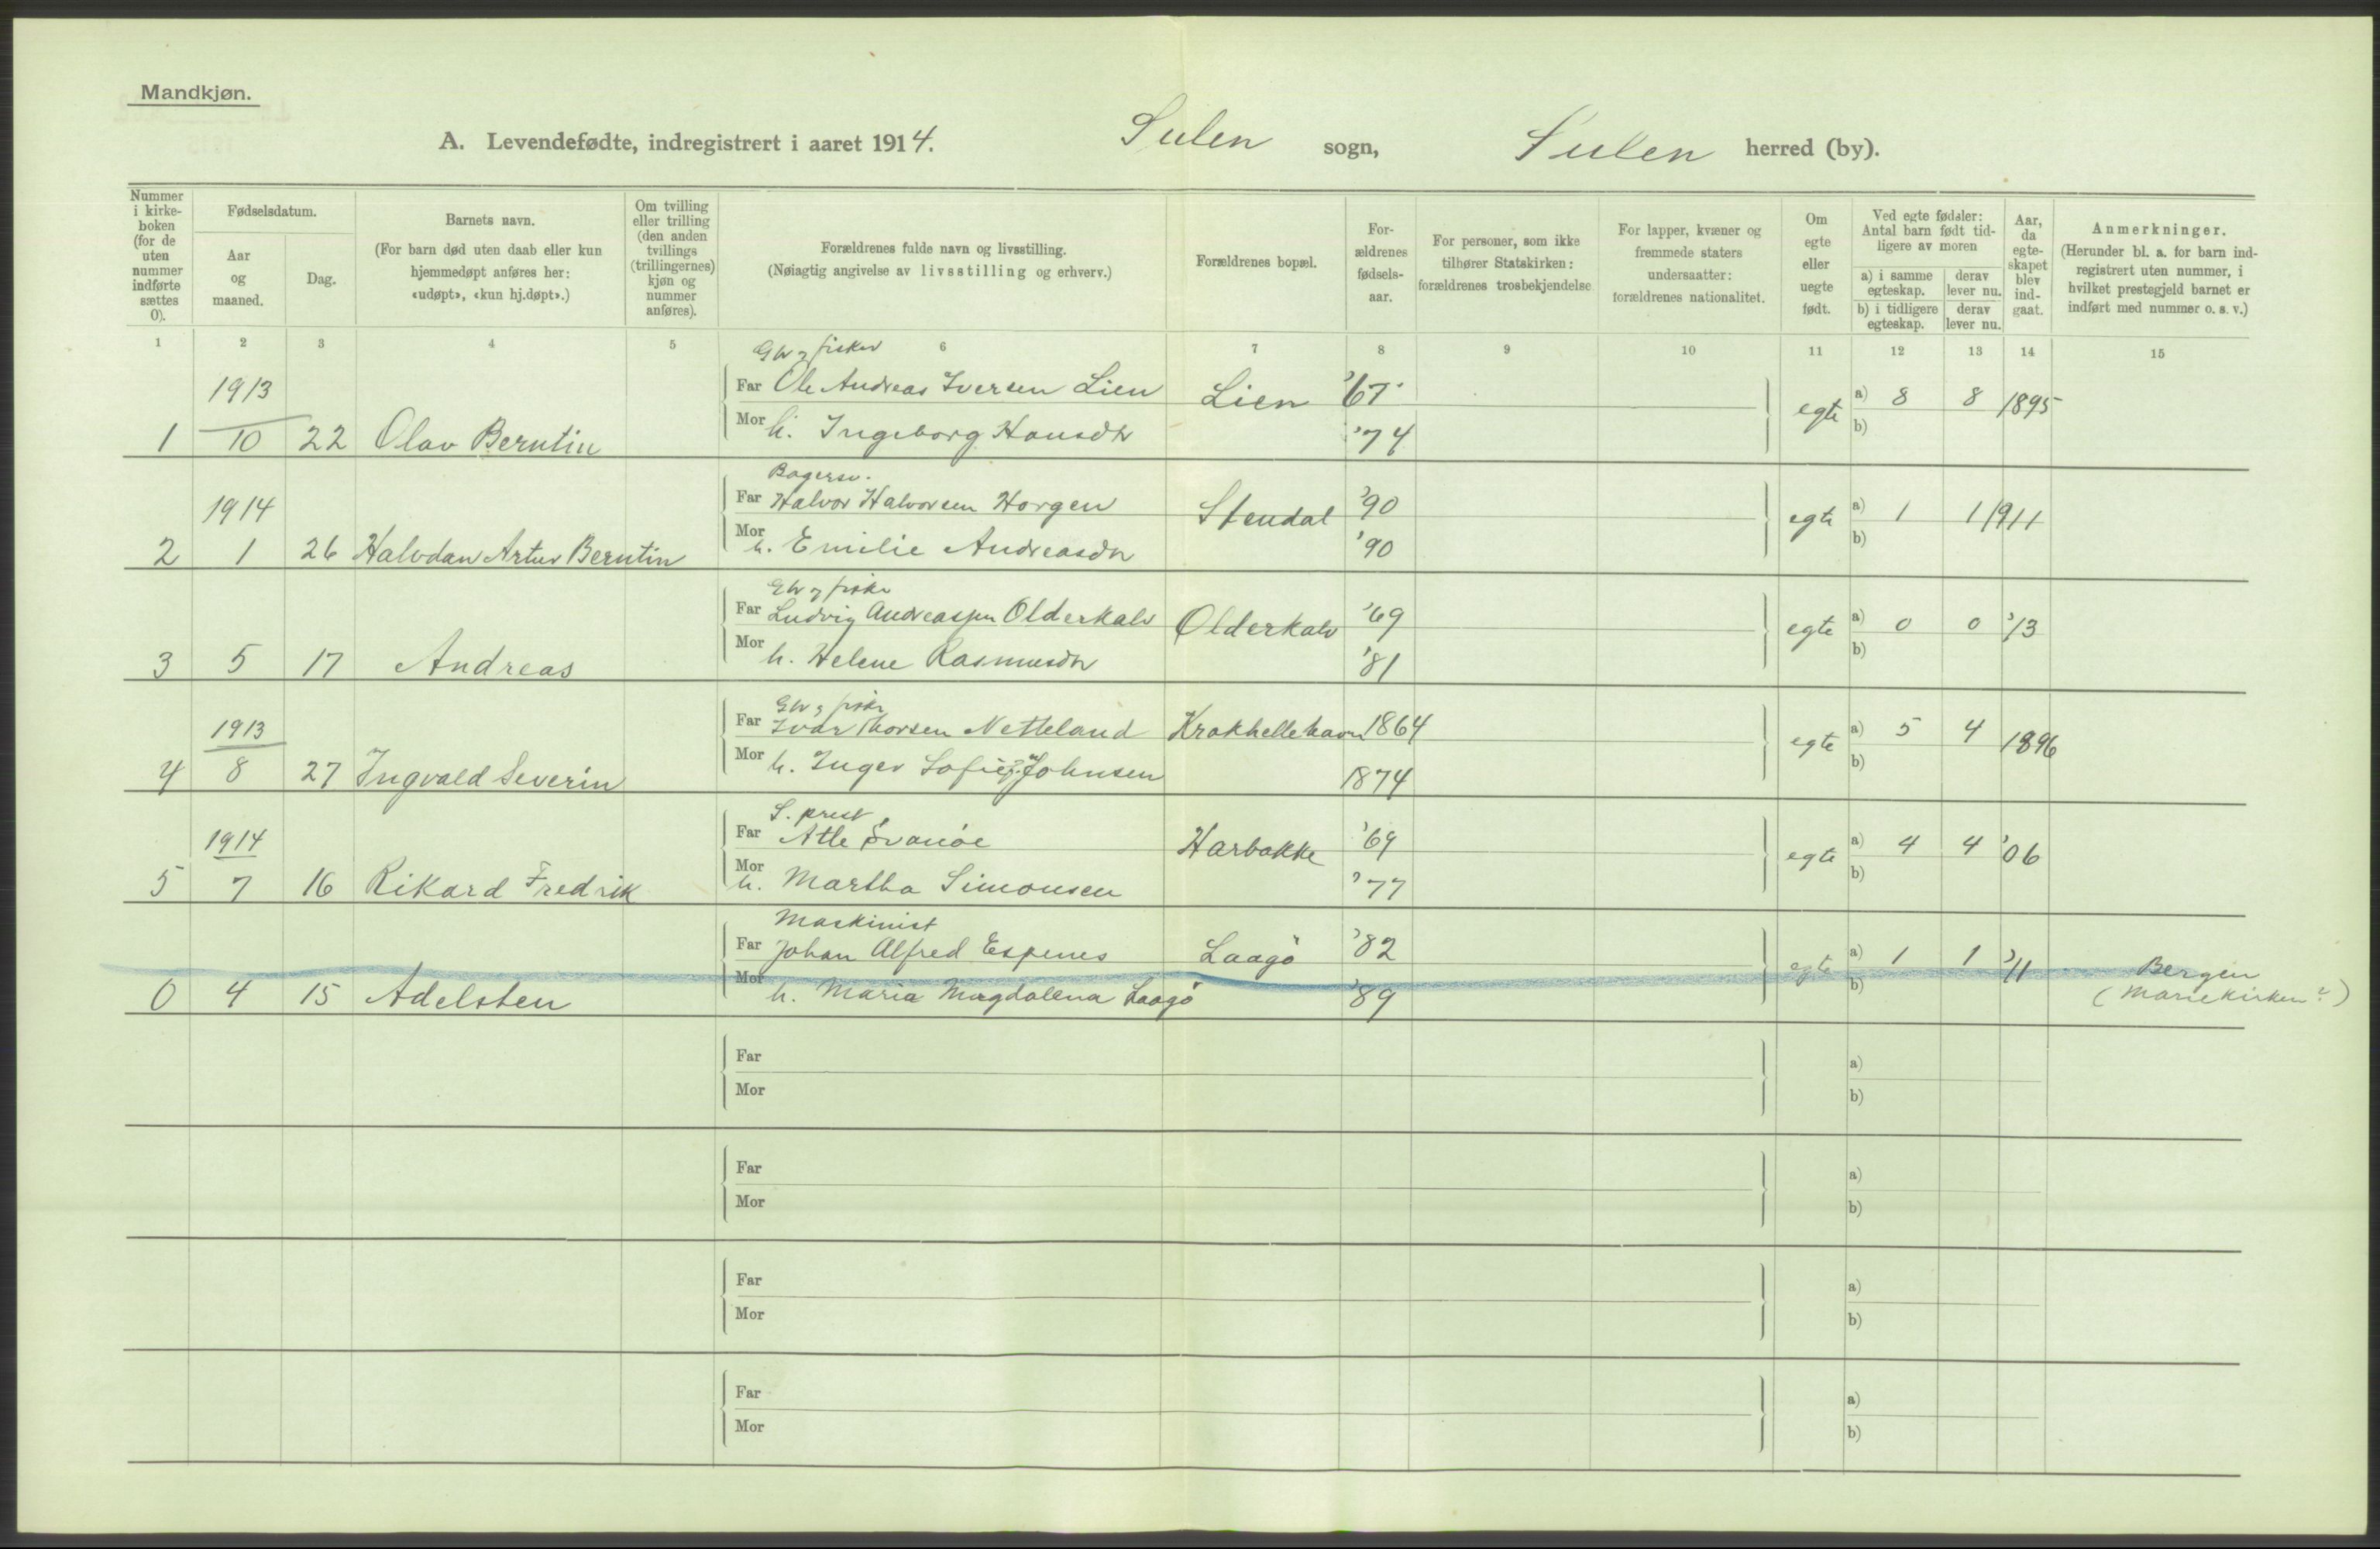 Mandkjøn.
A. Levendefødte, indregistrert i aaret 1914. Sulen sogn, Sulen herred (by).
Nummer i kirke-boken (for de uten nummer indførte sættes 0).
Fødselsdatum.
Aar og maaned.
Dag.
Barnets navn.
(For barn død uten daab eller kun hjemmedøpt anføres her: «udøpt», «kun hj.døpt».)
Om tvilling eller trilling (den anden tvillings (trillingernes) kjøn og nummer anføres).
Forældrenes fulde navn og livsstilling.
(Nøiagtig angivelse av livsstilling og erhverv.)
Forældrenes bopæl.
For-ældrenes fødsels-aar.
For personer, som ikke tilhører Statskirken: forældrenes trosbekjendelse
For lapper, kvæner og fremmede staters undersaatter: forældrenes nationalitet.
Om egte eller uegte født.
Ved egte fødsler: Antal barn født tid-ligere av moren
a) i samme egteskap. derav lever nu.
b) i tidligere egteskap. derav lever nu.
Aar, da egte-skapet blev ind-gaat.
Anmerkninger.
(Herunder bl. a. for barn ind-registrert uten nummer, i hvilket prestegjeld barnet er indført med nummer o. s. v.)
1 2 3 4 5 6 7 8 9 10 11 12 13 14 15
Gbr og fisker
1913 Far Ole Andreas Iversen Lien Lien '67 egte a) 8 8 1895
1 10 22 Olav Berntin Mor h. Ingeborg Hansdtr '74 b)
Bagersv.
1914 Far Halvor Halvorsen Horgen Stendal '90 egte a) 1 1 1911
2 1 26 Halvdan Artur Berntin Mor h. Emilie Andreasdtr '90 b)
Gbr og fisker
Far Ludvig Andreassen Olderkalv Olderkalv '69 egte a) 0 0 '13
3 5 17 Andreas Mor h. Helene Rasmusdtr '81 b)
Gbr og fisker
1913 Far Ivar Thorsen Netteland Krakhellehavn 1864 egte a) 5 4 1896
4 8 27 Ingvald Severin Mor h. Inger Sofie Johnsen 1874 b)
S. prest
1914 Far Atle Svanøe Harbakke '69 egte a) 4 4 '06
5 7 16 Rikard Fredrik Mor h. Martha Simonsen '77 b)
Maskinist
Far Johan Alfred Espenes Laagø '82 egte a) 1 1 '11 Bergen
0 4 15 Adelsten Mor h. Maria Magdalena Laagø '89 b) (Mariekirken?)
Far a)
Mor b)
Far a)
Mor b)
Far a)
Mor b)
Far a)
Mor b)